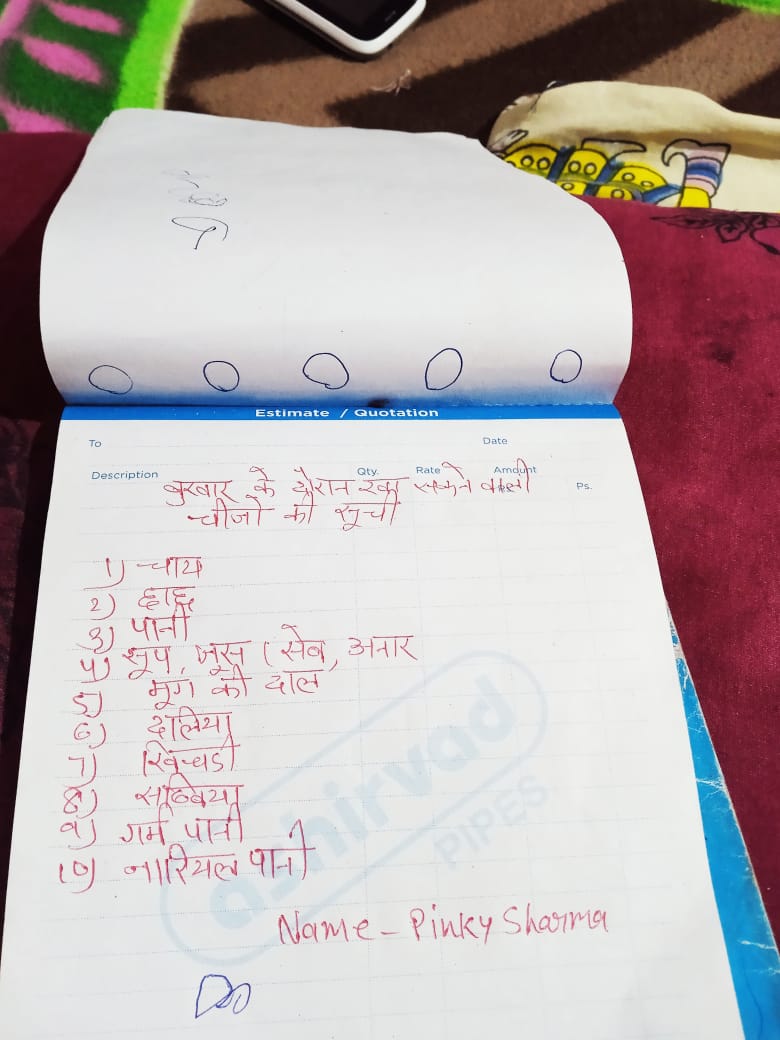 Estimate / Quotation
To
Date
Description
Qty.
Rate
Amount
Ps.
बुखार के दौरान खा सकने वाली
चीजो की सूची
1) चाय
2) छाछ
3) पानी
4) सूप, जूस (सेब, अनार
5) मूग की दाल
6) दलिया
7) खिचडी
8) सब्जिया
9) गर्म पानी
10) नारियल पानी
Name - Pinky Sharma
ashirvad
PIPES